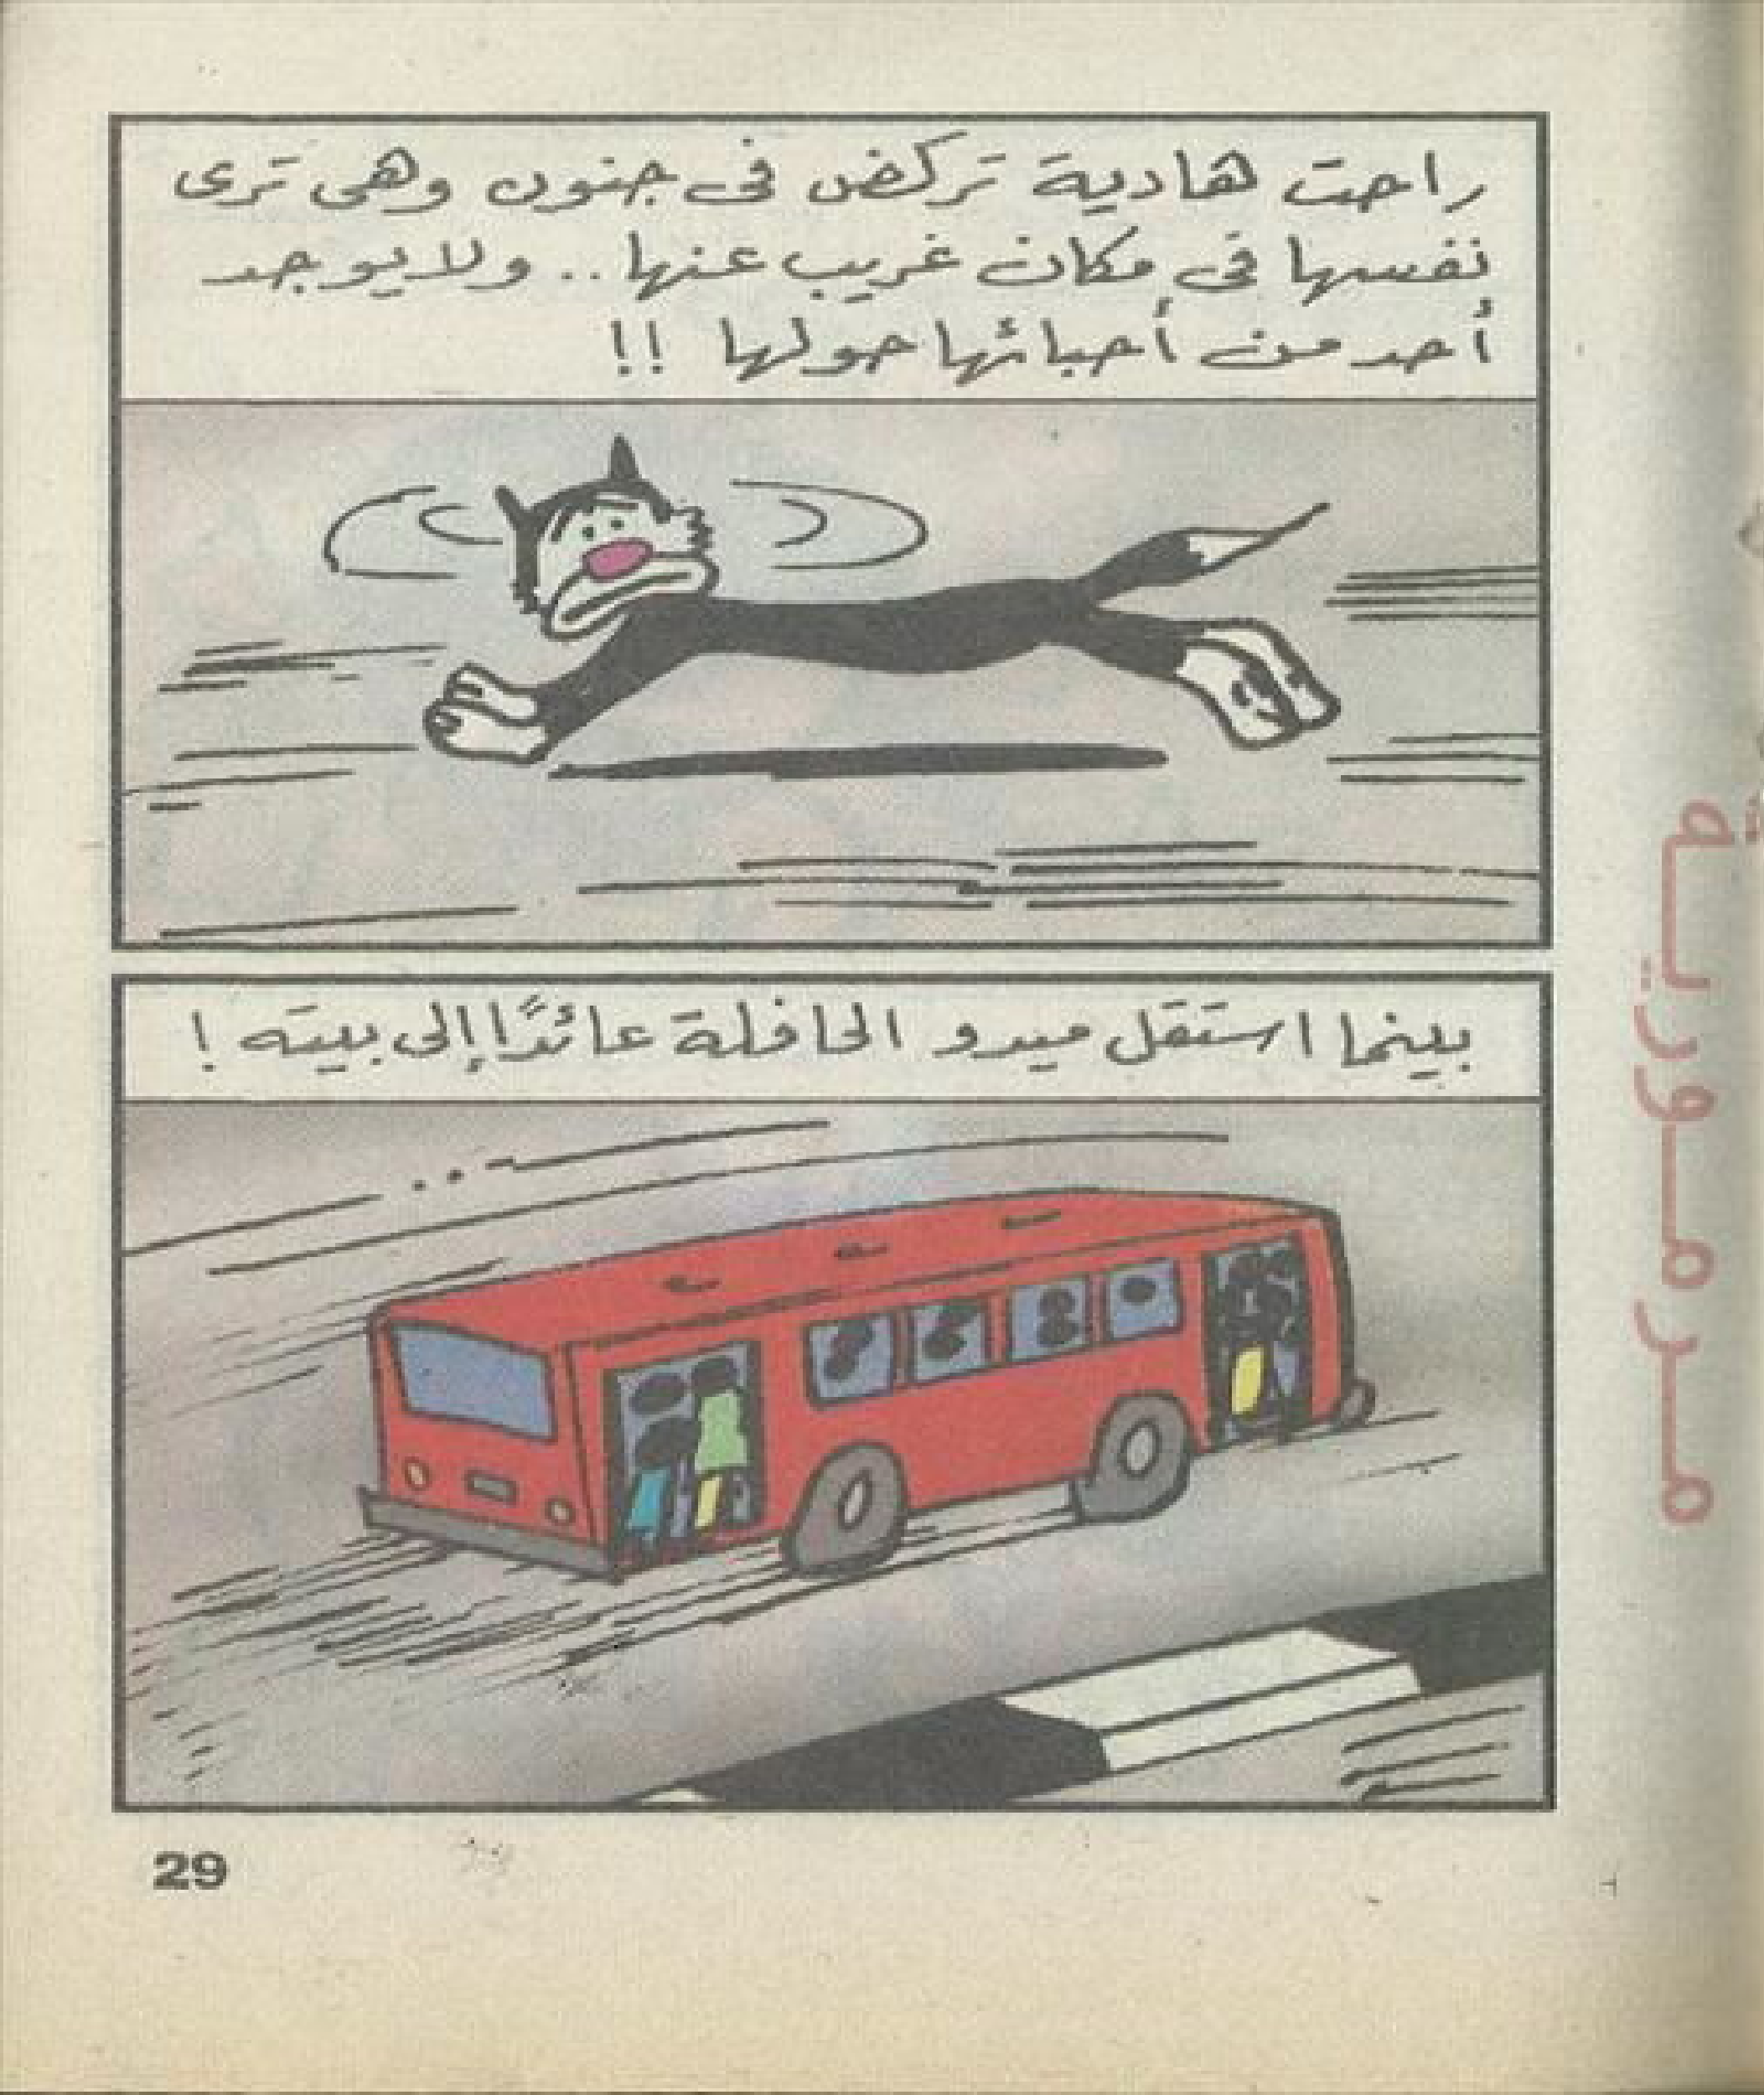 راحت هادية تركض فى جنون وهى ترى
نفسها فى مكان غريب عنها .. ولا يوجد
أحد من أحبائها حولها !!
بينما استقل ميدو الحافلة عائدًا إلى بيته !
29
مرمورية